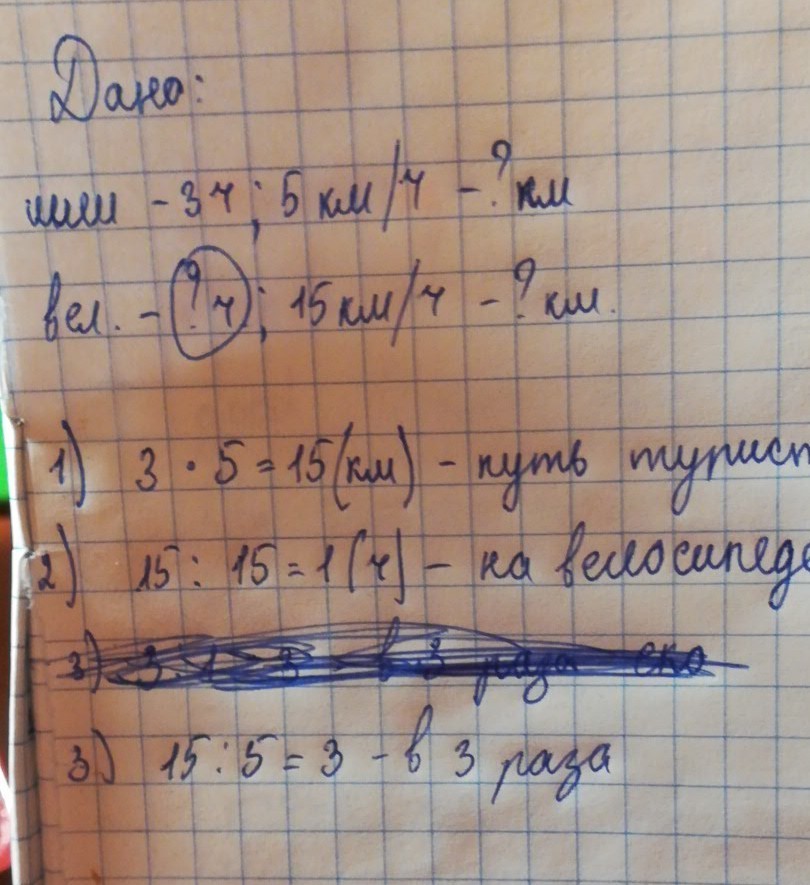 Дано:
- 3 ч; 5 км/ч - ? км
вел. - ? ч; 15 км/ч - ? км.
1) 3 · 5 = 15 (км) - путь турист
2) 15 : 15 = 1 (ч) - на велосипеде
3) 3 : 1 = 3 - в 3 раза ско
3) 15 : 5 = 3 - в 3 раза